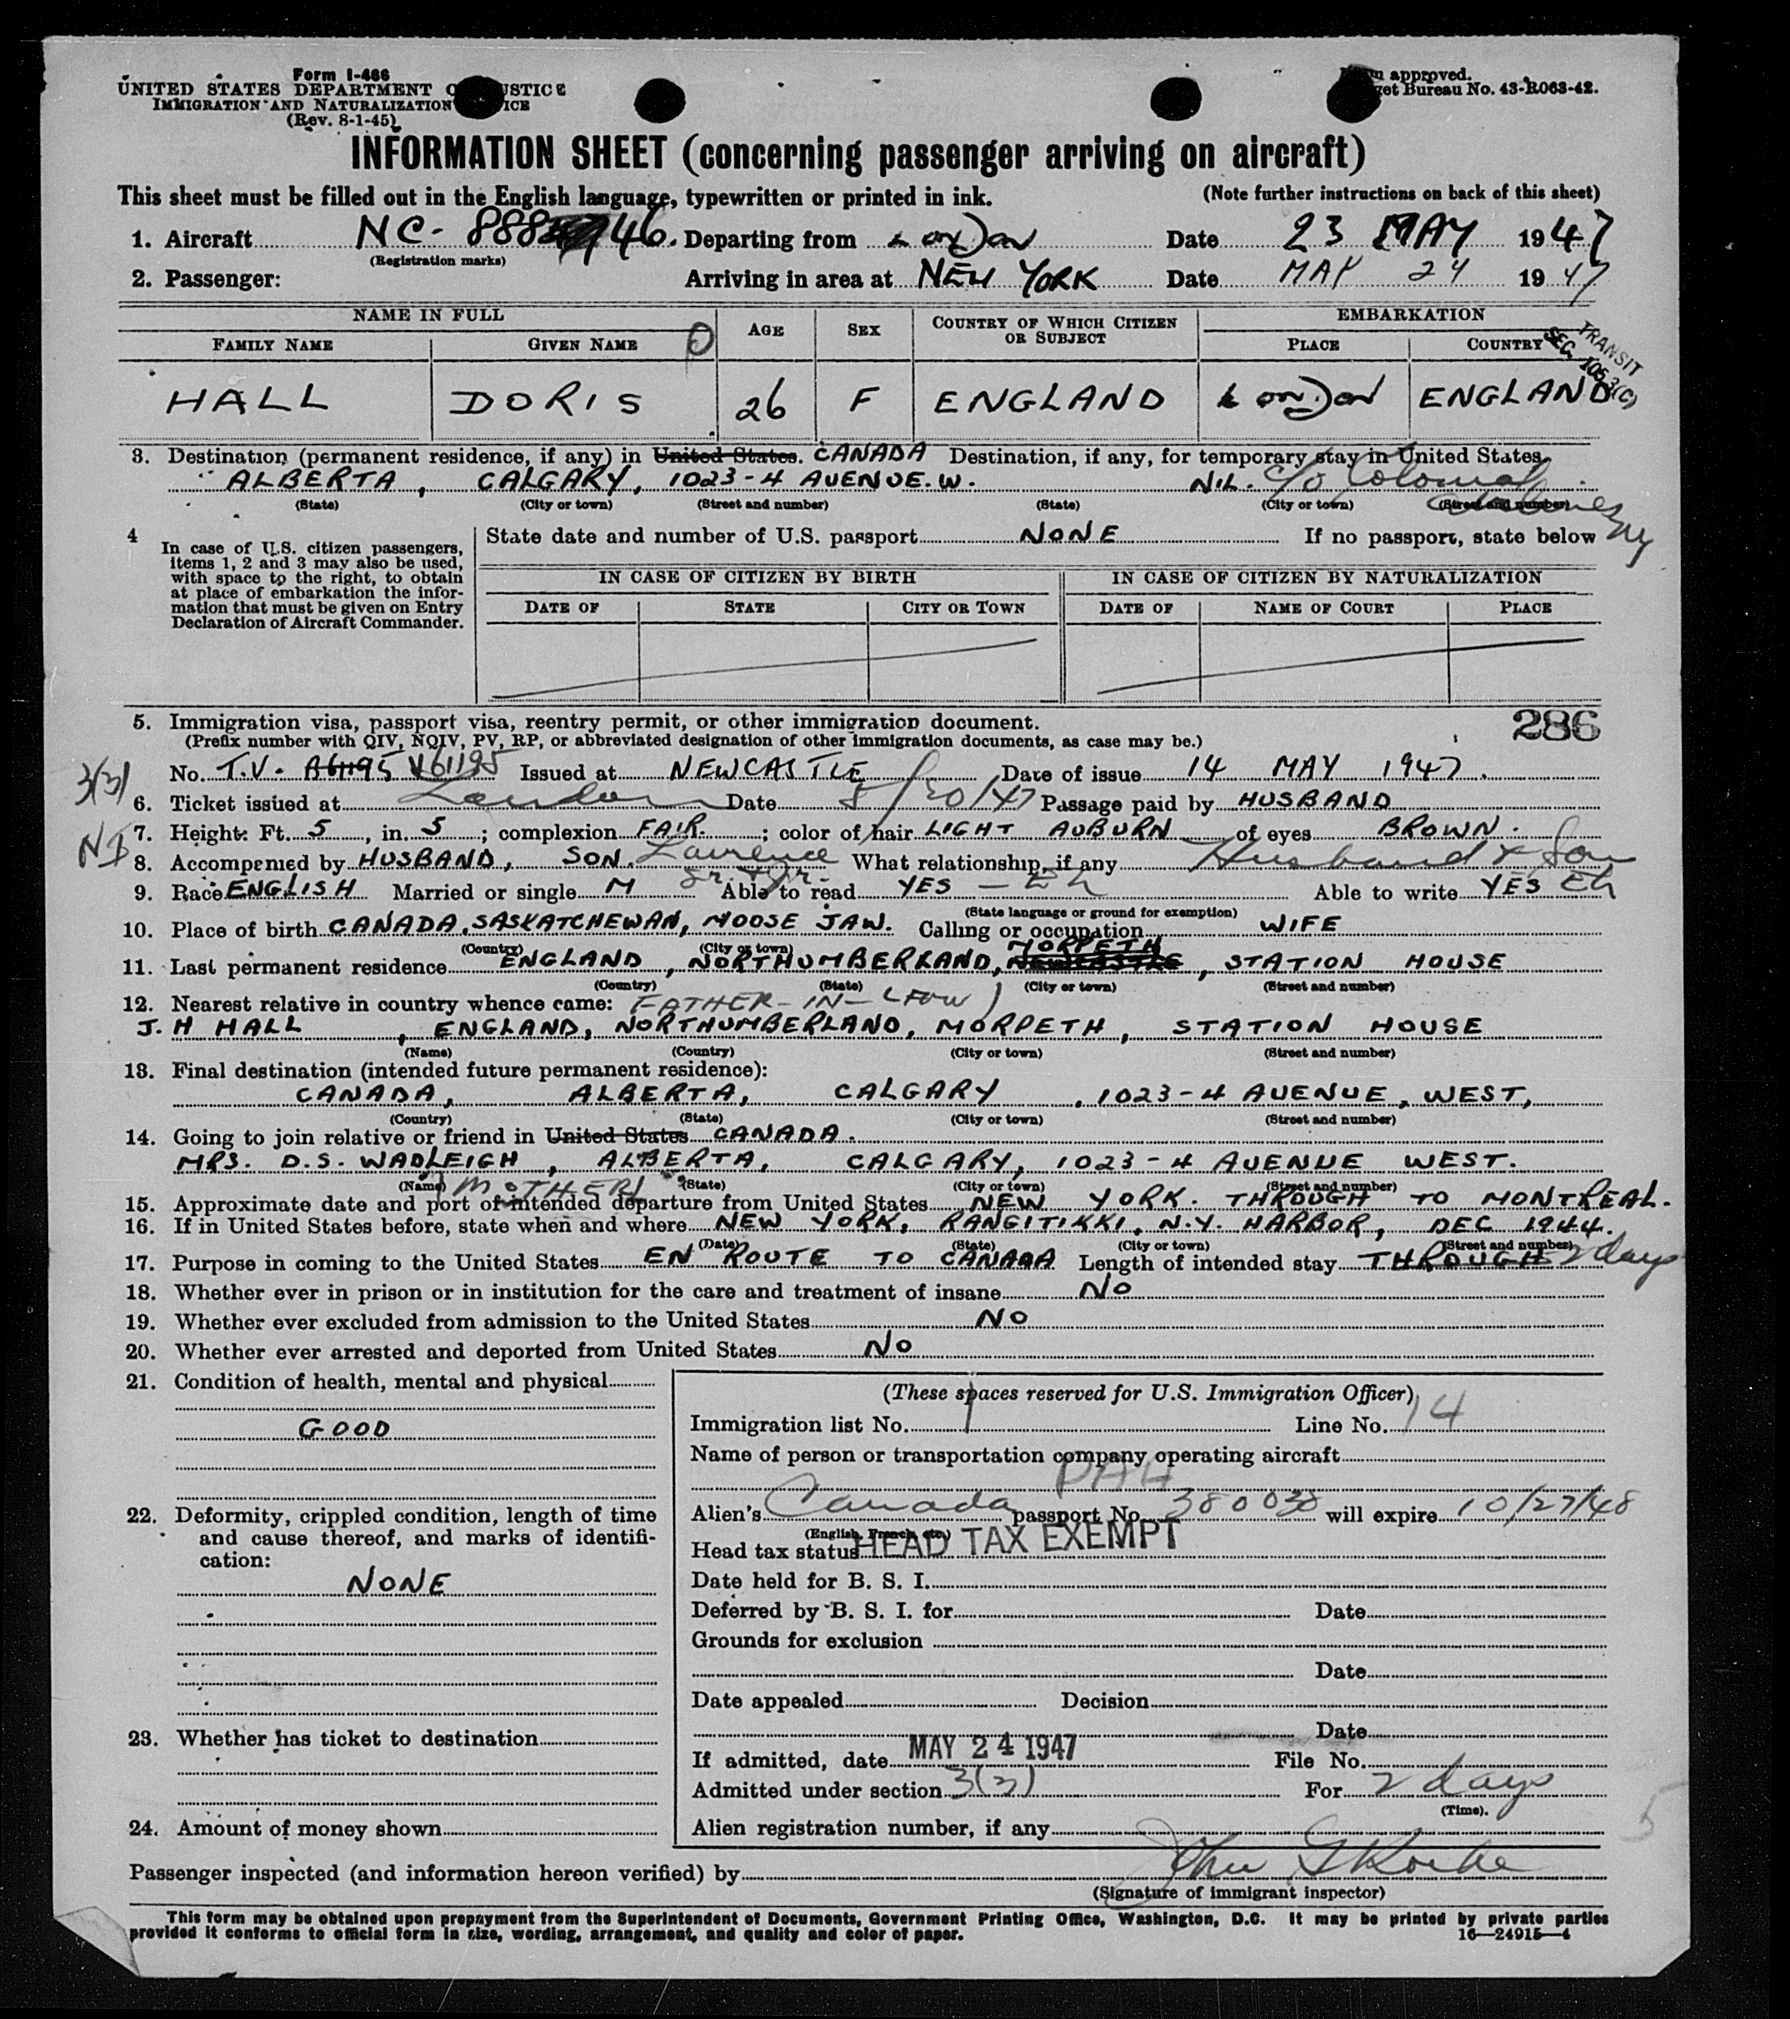 Form I-466
UNITED STATES DEPARTMENT OF JUSTICE
IMMIGRATION AND NATURALIZATION SERVICE
(Rev. 8-1-45)
Form approved.
Budget Bureau No. 43-R063-42.
INFORMATION SHEET (concerning passenger arriving on aircraft)
This sheet must be filled out in the English language, typewritten or printed in ink. (Note further instructions on back of this sheet)
1. Aircraft NC-888 46. Departing from London Date 23 MAY 1947
(Registration marks)
2. Passenger: Arriving in area at NEW YORK Date MAY 24 1947
NAME IN FULL AGE SEX COUNTRY OF WHICH CITIZEN OR SUBJECT EMBARKATION
FAMILY NAME GIVEN NAME PLACE COUNTRY
TRANSIT
SEC. 105 3(C)
HALL DORIS 26 F ENGLAND London ENGLAND
3. Destination (permanent residence, if any) in United States. CANADA Destination, if any, for temporary stay in United States.
ALBERTA, CALGARY, 1023-4 AVENUE.W. NIL. c/o Colonial
(State) (City or town) (Street and number) (State) (City or town) (Street and number)
NY
4 In case of U.S. citizen passengers, items 1, 2 and 3 may also be used, with space to the right, to obtain at place of embarkation the information that must be given on Entry Declaration of Aircraft Commander.
State date and number of U.S. passport NONE If no passport, state below
IN CASE OF CITIZEN BY BIRTH IN CASE OF CITIZEN BY NATURALIZATION
DATE OF STATE CITY OR TOWN DATE OF NAME OF COURT PLACE
5. Immigration visa, passport visa, reentry permit, or other immigration document. 286
(Prefix number with QIV, NQIV, PV, RP, or abbreviated designation of other immigration documents, as case may be.)
3(3) No. T.V. A61195 V61195 Issued at NEWCASTLE Date of issue 14 MAY 1947.
6. Ticket issued at London Date 5/20/47 Passage paid by HUSBAND
7. Height: Ft. 5, in. 5; complexion FAIR.; color of hair LIGHT AUBURN of eyes BROWN.
NI 8. Accompanied by HUSBAND, SON. Laurence What relationship, if any Husband & Son
9. Race ENGLISH Married or single M Able to read YES - Eh Able to write YES Eh
(State language or ground for exemption)
10. Place of birth CANADA, SASKATCHEWAN, MOOSE JAW. Calling or occupation WIFE
(Country) (City or town)
MORPETH
11. Last permanent residence ENGLAND, NORTHUMBERLAND, NEWCASTLE, STATION HOUSE
(Country) (State) (City or town) (Street and number)
12. Nearest relative in country whence came: FATHER-IN-LAW)
J. H HALL, ENGLAND, NORTHUMBERLAND, MORPETH, STATION HOUSE
(Name) (Country) (City or town) (Street and number)
13. Final destination (intended future permanent residence):
CANADA, ALBERTA, CALGARY, 1023-4 AVENUE, WEST,
(Country) (State) (City or town) (Street and number)
14. Going to join relative or friend in United States CANADA.
MRS. D.S. WADLEIGH, ALBERTA, CALGARY, 1023-4 AVENUE WEST.
(Name) (State) (City or town) (Street and number)
(MOTHER)
15. Approximate date and port of intended departure from United States NEW YORK. THROUGH TO MONTREAL.
16. If in United States before, state when and where NEW YORK, RANGITIKKI, N.Y. HARBOR, DEC 1944.
(Date) (State) (City or town) (Street and number)
17. Purpose in coming to the United States EN ROUTE TO CANADA Length of intended stay THROUGH 2 days
18. Whether ever in prison or in institution for the care and treatment of insane NO
19. Whether ever excluded from admission to the United States NO
20. Whether ever arrested and deported from United States NO
21. Condition of health, mental and physical
GOOD
22. Deformity, crippled condition, length of time and cause thereof, and marks of identification:
NONE
23. Whether has ticket to destination
24. Amount of money shown
(These spaces reserved for U.S. Immigration Officer)
Immigration list No. 1 Line No. 14
Name of person or transportation company operating aircraft
PAA
Alien's Canada passport No. 380030 will expire 10/27/48
(English, French, etc.)
Head tax status HEAD TAX EXEMPT
Date held for B. S. I.
Deferred by B. S. I. for Date
Grounds for exclusion
Date
Date appealed Decision
Date
If admitted, date MAY 24 1947 File No.
Admitted under section 3(3) For 2 days
(Time).
Alien registration number, if any
5
Passenger inspected (and information hereon verified) by John G Rocke
(Signature of immigrant inspector)
This form may be obtained upon prepayment from the Superintendent of Documents, Government Printing Office, Washington, D.C. It may be printed by private parties
provided it conforms to official form in size, wording, arrangement, and quality and color of paper. 16—24915-4